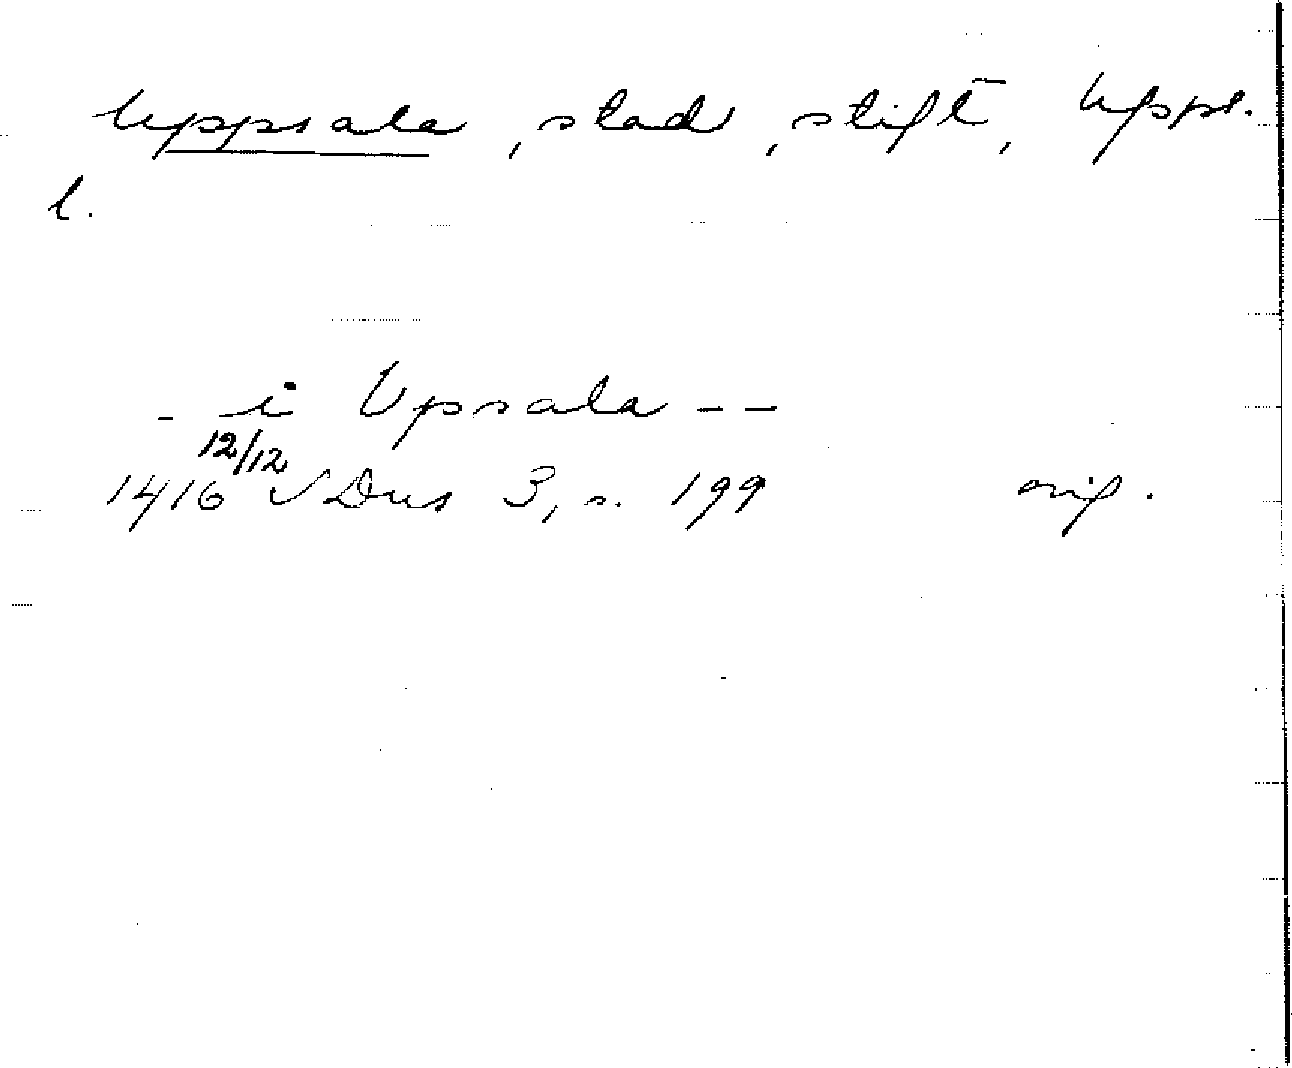 Uppsala, stad, stift, Uppl.
l.
- i Upsala - -
12/12
1416 √ Dns 3, s. 199 orig.